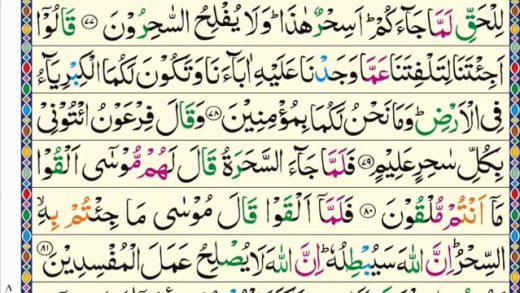 لِلْحَقِّ لَمَّا جَآءَكُمْ ؕ اَسِحْرٌ هٰذَا ؕ وَلَا يُفْلِحُ السّٰحِرُوْنَ ﴿۷۷﴾ قَالُوْۤا
اَجِئْتَنَا لِتَلْفِتَنَا عَمَّا وَجَدْنَا عَلَيْهِ اٰبَآءَنَا وَتَكُوْنَ لَكُمَا الْكِبْرِيَآءُ
فِى الْاَرْضِ ؕ وَمَا نَحْنُ لَكُمَا بِمُؤْمِنِيْنَ ﴿۷۸﴾ وَقَالَ فِرْعَوْنُ ائْتُوْنِىْ
بِكُلِّ سٰحِرٍ عَلِيْمٍ ﴿۷۹﴾ فَلَمَّا جَآءَ السَّحَرَةُ قَالَ لَهُمْ مُّوْسٰۤى اَلْقُوْا
مَاۤ اَنْتُمْ مُّلْقُوْنَ ﴿۸۰﴾ فَلَمَّاۤ اَلْقَوْا قَالَ مُوْسٰى مَا جِئْتُمْ بِهِ ۙ
السِّحْرُ ؕ اِنَّ اللّٰهَ سَيُبْطِلُهٗ ؕ اِنَّ اللّٰهَ لَا يُصْلِحُ عَمَلَ الْمُفْسِدِيْنَ ﴿۸۱﴾